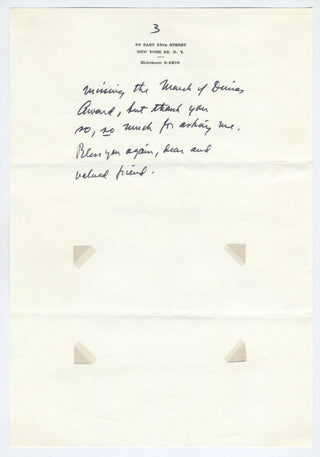 3
EAST
STREET
NEW YORK 22, N. Y.
ELDORADO 5-
missing the March of Dimes
Award, but thank you
so, so much for asking me.
Bless you again, dear and
valued friend.